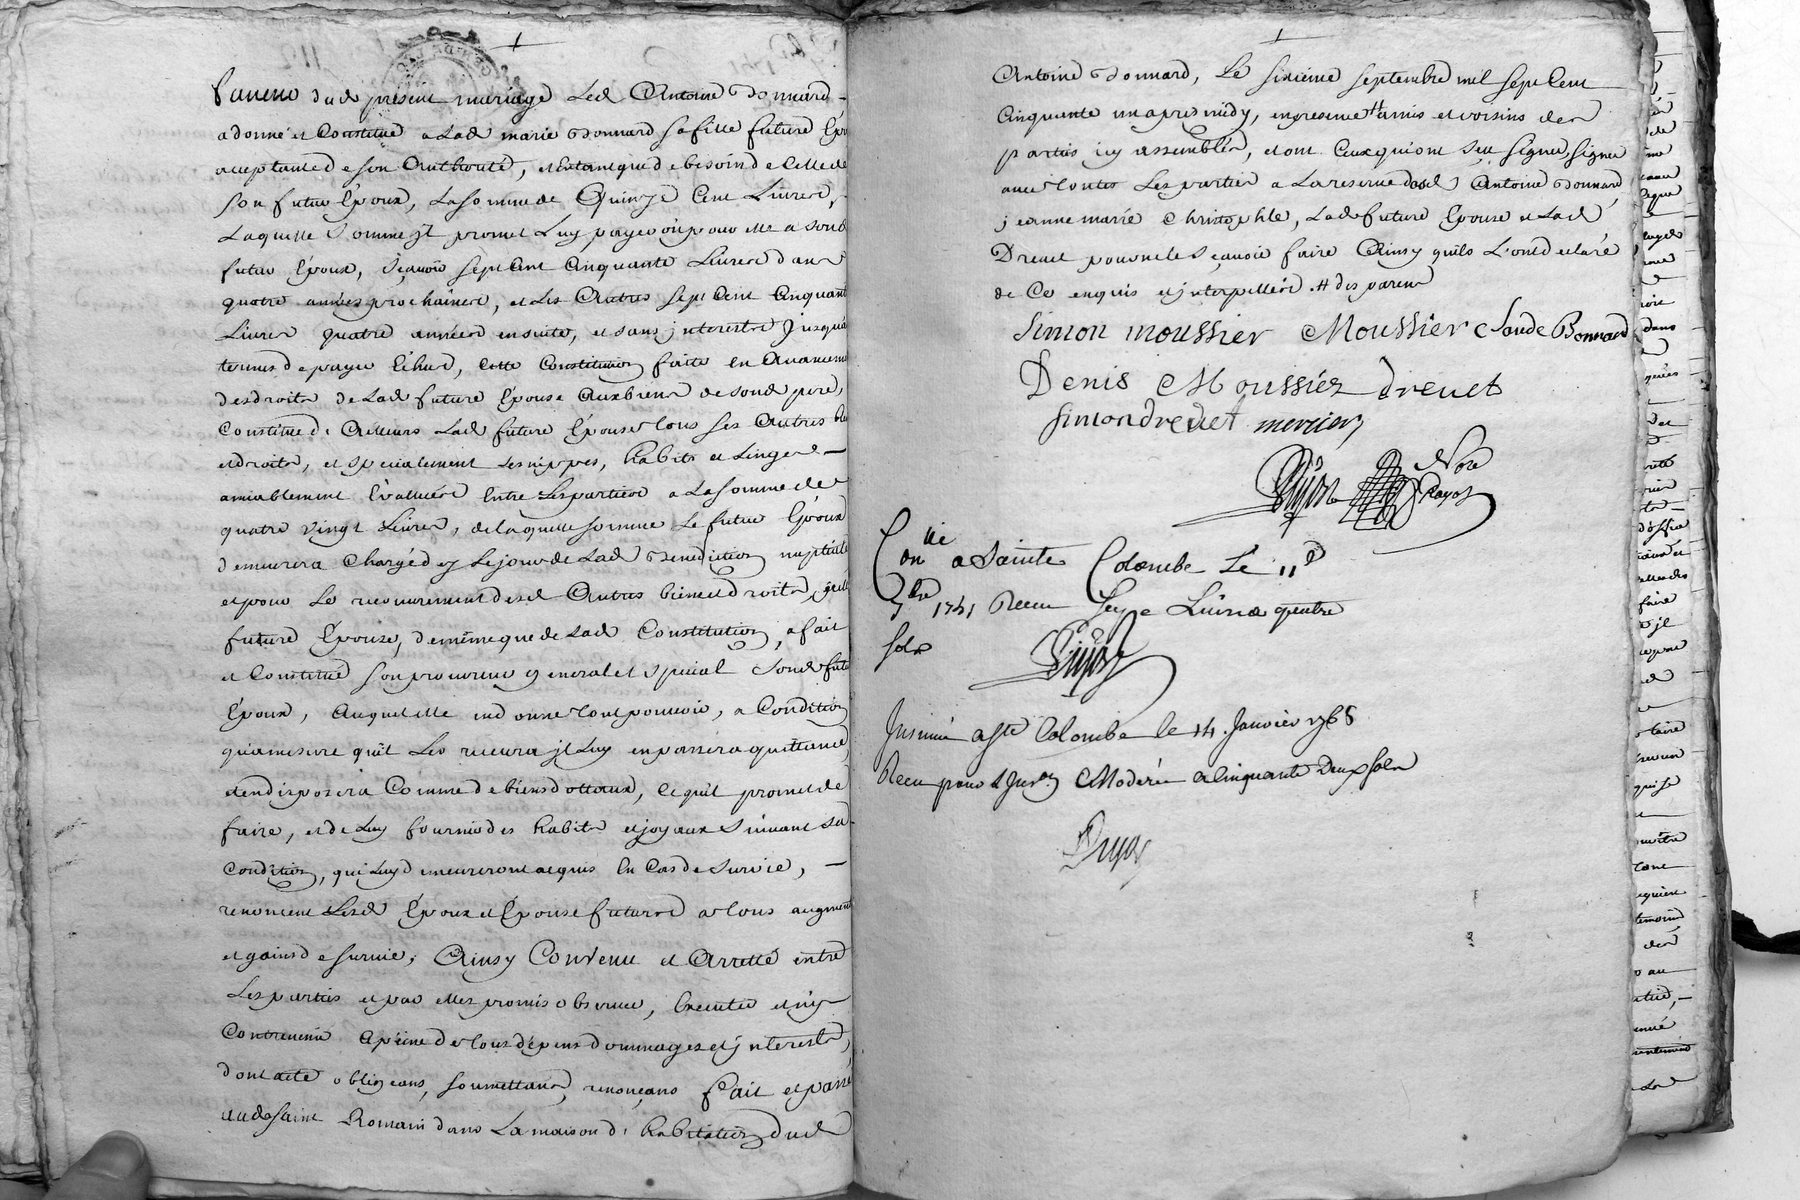 faveur dud present mariage Led Antoine Bonnard
a donné et Constitué a Lad marie Bonnard sa fille future Epo
acceptante de son Authorité, et Entant que de besoin de Celle de
son futur Epoux, La somme de Quinze Cent Livres,
Laquelle somme jl promet Luy payer ou pour elle a sond
futur Epoux, sçavoir sept Cent Cinquante Livres dans
quatre années prochaines, et Les Autres sept Cent Cinquant
Livres quatre années ensuite, et sans jnterests jusqu'au
termes de payer Echus, Cette Constitution faite en Avanceme
des droits de Lad future Epouse Aux biens de sond pere,
Constitue d'Ailleurs Lad future Epouse tous ses Autres bie
et droits, et specialement ses nippes, habits et Linges
amiablement Evalluées Entre Les parties a La somme de
quatre vingt Livres, de laquelle somme Le futur Epoux
demeurera Chargé des Le jour de Lad Benediction nuptialle
et pour Le recouvrement desd Autres biens et droits,
future Epouse, de même que de Lad Constitution, a fait
et Constitué son procureur general et special sond futu
Epoux, Auquel elle en donne tout pouvoir, a Condition
qu'a mesure qu'il Les recevra jl Luy en passera quittance
et en disposera Comme de biens dottaux, Ce qu'il promet de
faire, et de Luy fournir des habits et joyaux suivant sa
Condition, qui Luy demeureront acquis En Cas de survie,
renoncent Lesd Epoux et Epouse futurs a tous augment
et gains de survie; Ainsy Convenu et Arretté entre
Les parties et par elles promis observer, Executer et n'y
Contrevenir a peine de tous dépens dommages et jnterests,
dont acte obligeans, soumettans, renonçans fait et passé
aud saint Romain dans La maison d'habitation dud
Antoine Bonnard, Le sixieme septembre mil sept Cent
Cinquante un apres midy, en presence # amis et voisins des
parties icy assemblés, et ont Ceux qui ont sçu signer, signé
avec toutes Les parties a La reserve dud Antoine Bonnard
jeanne marie Christophle, Lad future Epouse et Lad
Drevet pour ne le sçavoir faire Ainsy qu'ils L'ont declaré
de Ce enquis et jnterpellés. # des parens
Simon moussier Moussier Claude Bonnard
Denis Moussier drevet
simon drevet mercier
Nore Royal
Conllé a Sainte Colombe Le 11e
7bre 1751 Receu seize Livres quatre
sols
Jnsinué a Ste Colombe le 14. Janvier 1765
Receu pour l'Jnson Moderée a Cinquante Deux sols